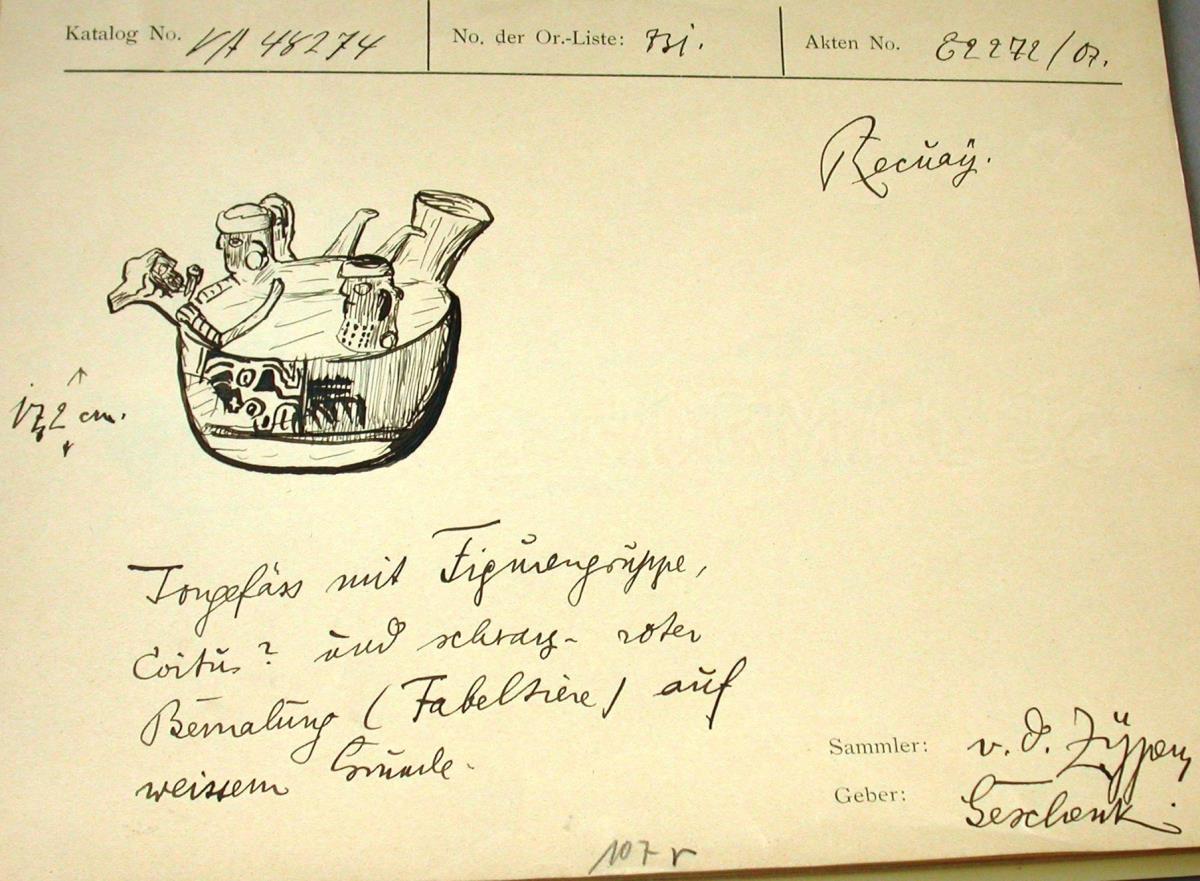 Katalog No. VA 48274 No. der Or.-Liste: Akten No. E 2272/07.
Recuay.
17,2 cm.
Tongefäss mit Figurengruppe,
Coitus? und schwarz-roter
Bemalung (Fabeltiere) auf
weissem Grunde.
Sammler: v. d. Zypen,
Geber: Geschenk.
107 r